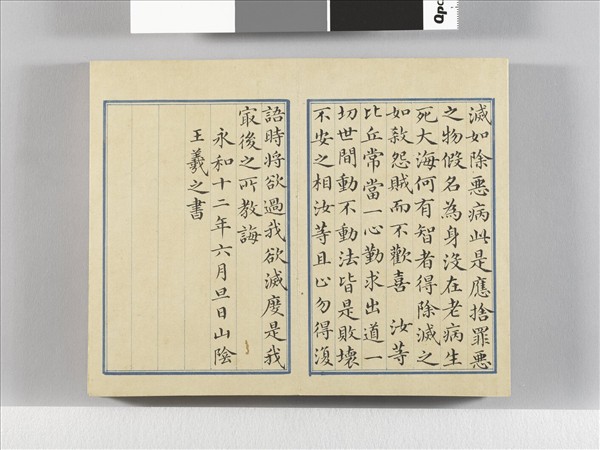 滅如除惡病此是應捨罪惡
之物假名為身沒在老病生
死大海何有智者得除滅之
如敘怨賊而不歡喜 汝等
比丘常當一心勤求出道一
切世間動不動法皆是敗壞
不安之相汝等且止勿得復
語時将欲過我欲滅度是我
冣後之所教誨
永和十二年六月旦日山陰
王羲之書